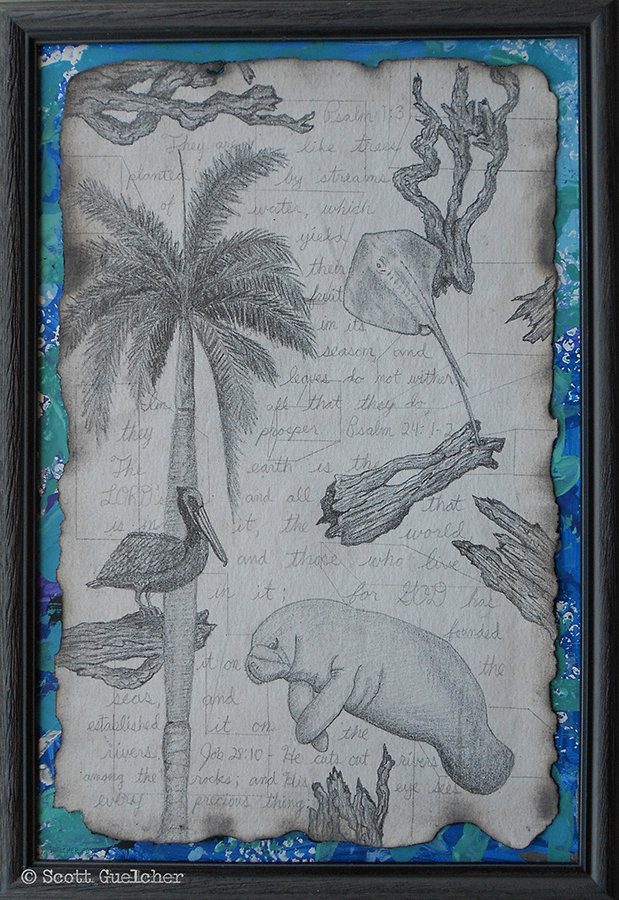 Psalm 1:3
They are like trees
planted by streams
of water, which
yield
their
fruit
in its
season, and
leaves do not wither.
In all that they do,
they prosper. Psalm 24:1-2
The earth is the
LORD's and all that
is in it, the world
and those who live
in it; for GOD has
founded
it on the
seas, and
established it on the
rivers. Job 28:10 - He cuts out rivers
among the rocks; and His eye sees
every precious thing.
© Scott Guelcher